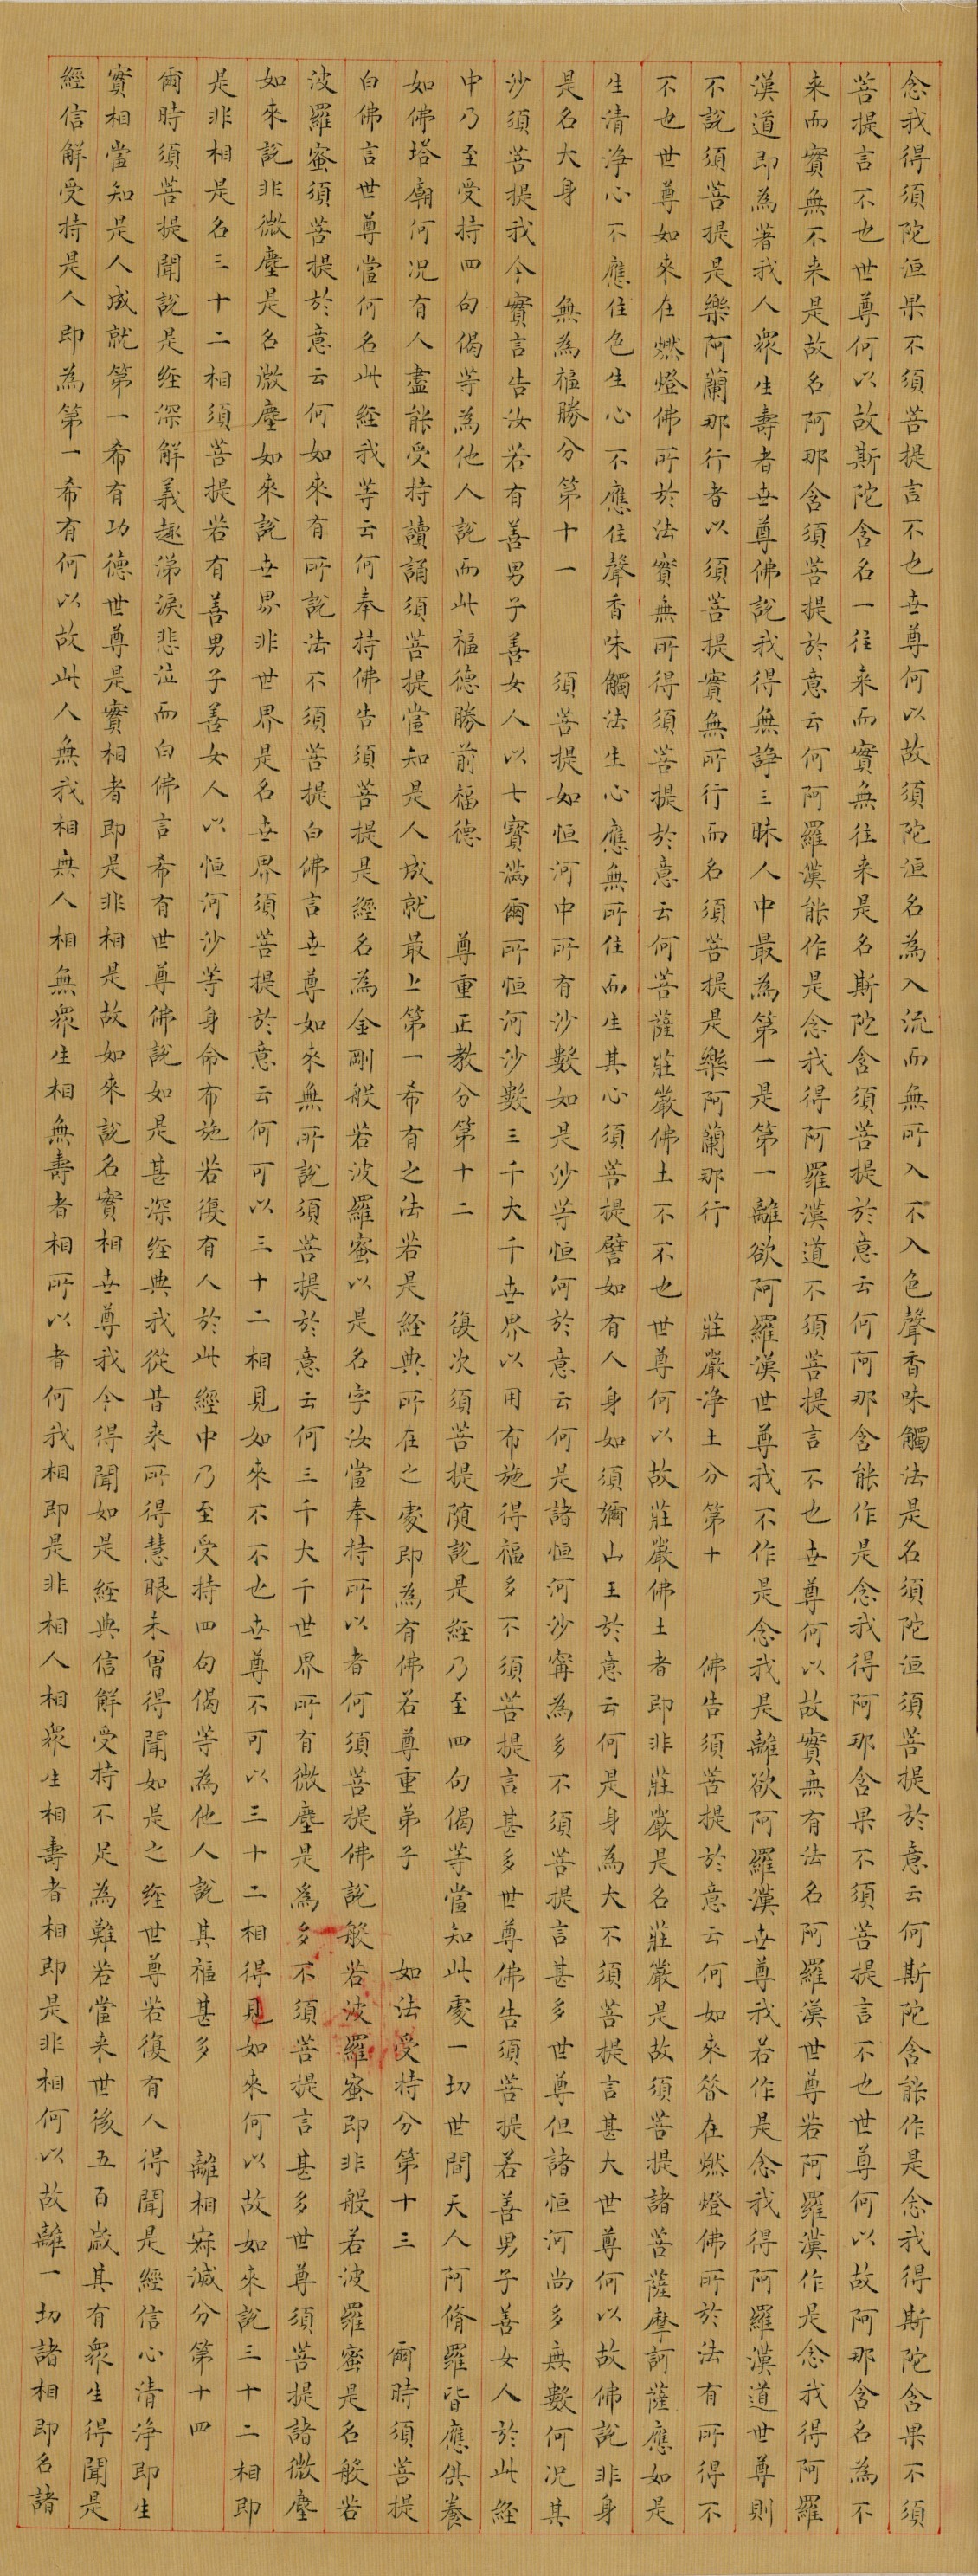 念我得須陀洹果不須菩提言不也世尊何以故須陀洹名為入流而無所入不入色聲香味觸法是名須陀洹須菩提於意云何斯陀含能作是念我得斯陀含果不須
菩提言不也世尊何以故斯陀含名一往来而實無往来是名斯陀含須菩提於意云何阿那含能作是念我得阿那含果不須菩提言不也世尊何以故阿那含名為不
来而實無不来是故名阿那含須菩提於意云何阿羅漢能作是念我得阿羅漢道不須菩提言不也世尊何以故實無有法名阿羅漢世尊若阿羅漢作是念我得阿羅
漢道即為著我人眾生壽者世尊佛說我得無諍三昧人中最為第一是第一離欲阿羅漢世尊我不作是念我是離欲阿羅漢世尊我若作是念我得阿羅漢道世尊則
不說須菩提是樂阿蘭那行者以須菩提實無所行而名須菩提是樂阿蘭那行　莊嚴淨土分第十　佛告須菩提於意云何如來昝在燃燈佛所於法有所得不
不也世尊如來在燃燈佛所於法實無所得須菩提於意云何菩薩莊嚴佛土不不也世尊何以故莊嚴佛土者即非莊嚴是名莊嚴是故須菩提諸菩薩摩訶薩應如是
生清淨心不應住色生心不應住聲香味觸法生心應無所住而生其心須菩提譬如有人身如須彌山王於意云何是身為大不須菩提言甚大世尊何以故佛說非身
是名大身　無為福勝分第十一　須菩提如恒河中所有沙數如是沙等恒河於意云何是諸恒河沙寗為多不須菩提言甚多世尊但諸恒河尚多無數何况其
沙須菩提我今實言告汝若有善男子善女人以七寶滿爾所恒河沙數三千大千世界以用布施得福多不須菩提言甚多世尊佛告須菩提若善男子善女人於此經
中乃至受持四句偈等為他人說而此福德勝前福德　尊重正教分第十二　復次須菩提隨說是經乃至四句偈等當知此處一切世間天人阿脩羅皆應供養
如佛塔廟何况有人盡能受持讀誦須菩提當知是人成就最上第一希有之法若是經典所在之處即為有佛若尊重弟子　如法受持分第十三　爾時須菩提
白佛言世尊當何名此經我等云何奉持佛告須菩提是經名為金剛般若波羅蜜以是名字汝當奉持所以者何須菩提佛說般若波羅蜜即非般若波羅蜜是名般若
波羅蜜須菩提於意云何如來有所說法不須菩提白佛言世尊如來無所說須菩提於意云何三千大千世界所有微塵是為多不須菩提言甚多世尊須菩提諸微塵
如來說非微塵是名微塵如來說世界非世界是名世界須菩提於意云何可以三十二相見如來不不也世尊不可以三十二相得見如來何以故如來說三十二相即
是非相是名三十二相須菩提若有善男子善女人以恒河沙等身命布施若復有人於此經中乃至受持四句偈等為他人說其福甚多　離相寂滅分第十四
爾時須菩提聞說是經深解義趣涕淚悲泣而白佛言希有世尊佛說如是甚深經典我從昔来所得慧眼未曾得聞如是之經世尊若復有人得聞是經信心清淨即生
實相當知是人成就第一希有功德世尊是實相者即是非相是故如來說名實相世尊我今得聞如是經典信解受持不足為難若當来世後五百歲其有眾生得聞是
經信解受持是人即為第一希有何以故此人無我相無人相無眾生相無壽者相所以者何我相即是非相人相眾生相壽者相即是非相何以故離一切諸相即名諸